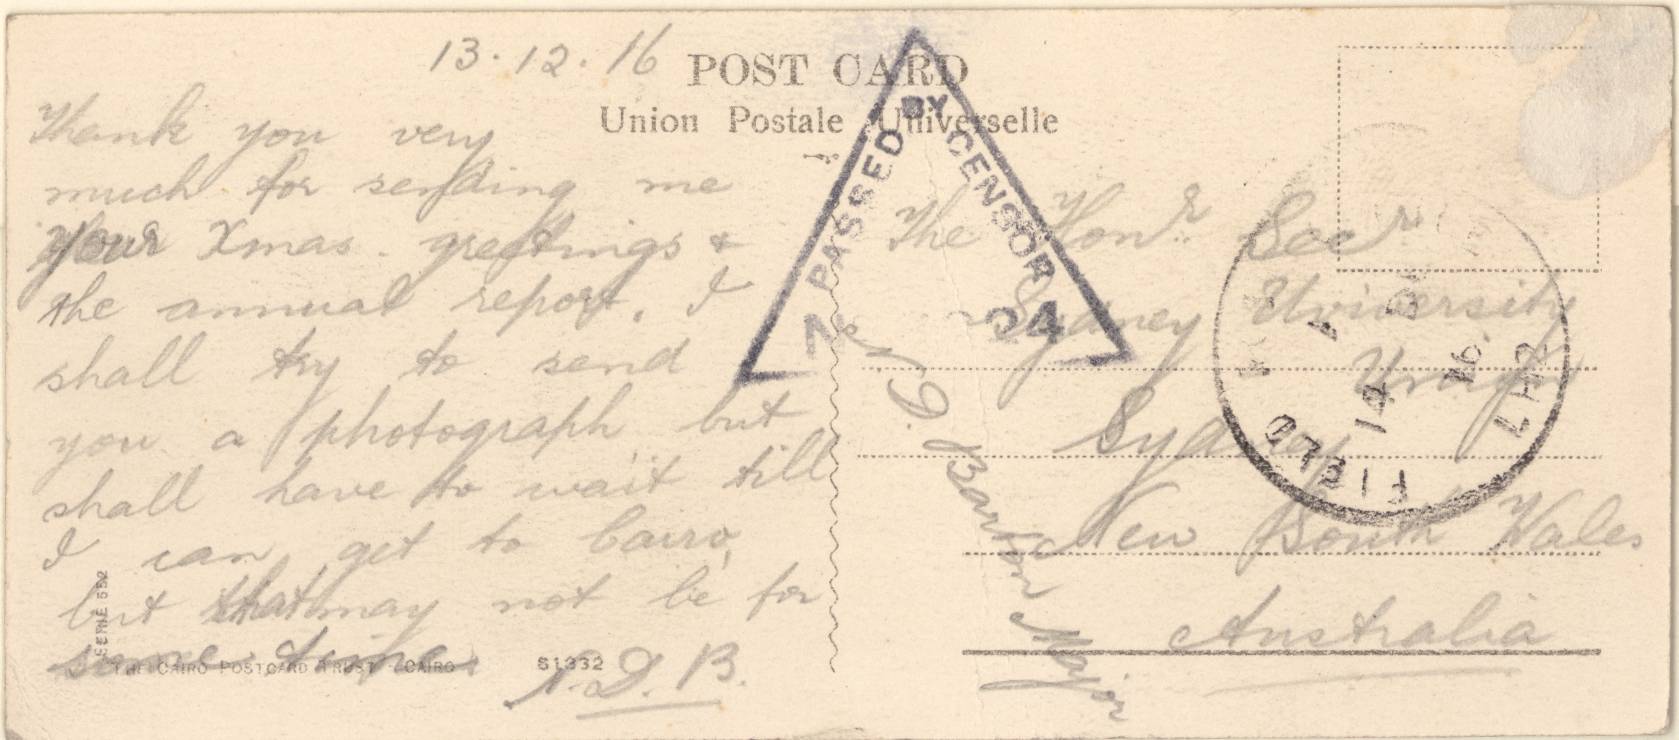 13.12.16
POST CARD
Union Postale Universelle
Thank you very
much for sending me
your Xmas greetings &
the annual report. I
shall try to send
you a photograph but
shall have to wait till
I can get to Cairo,
but that may not be for
some time.
N.D.B.
SERIE 552
THE CAIRO POSTCARD TRUST - CAIRO
S1332
PASSED BY CENSOR
The Honr. Secr
Sydney University
Union
Sydney
New South Wales
Australia
N D. Barton Major
FIELD
14
16